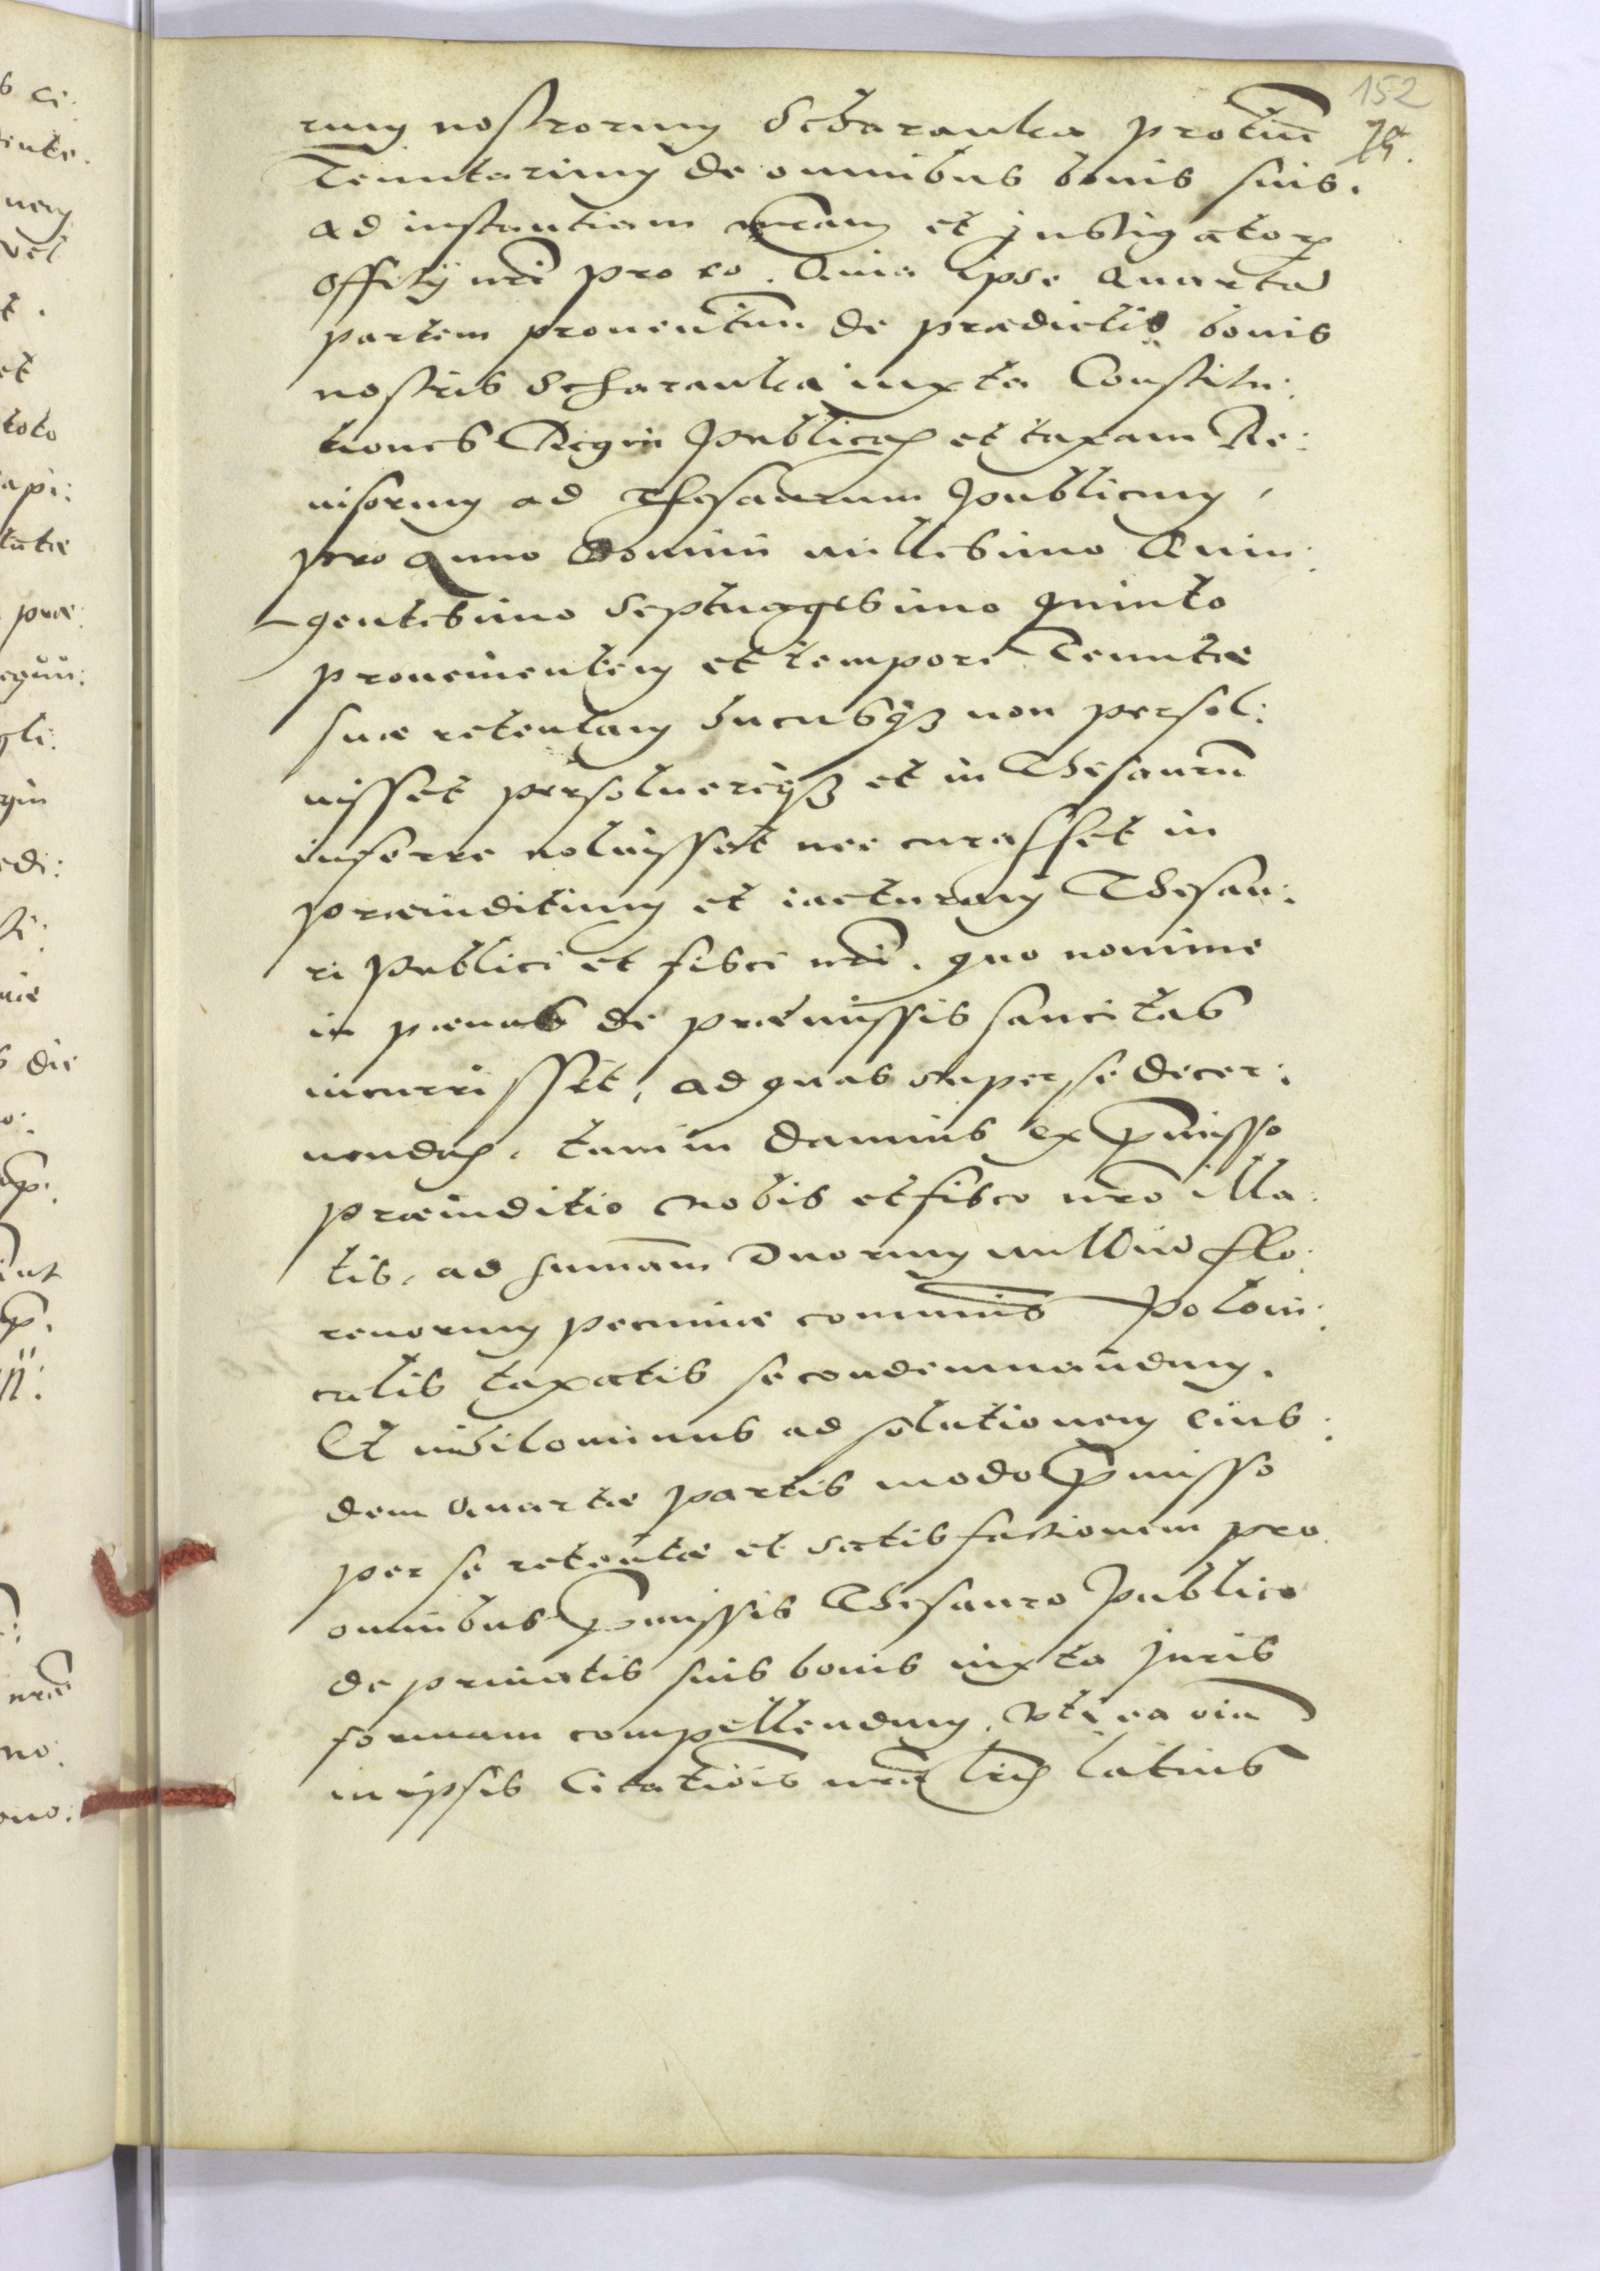 152
rum nostrorum Scharauka protunc
Tenutarium de omnibus bonis suis.
ad instantiam nr̃am et Instigatorꝫ
Officij nr̃i pro eo. Quia Ipse Quartã
partem prouentuũ de prædictis bonis
nostris Scharauka iuxta Constitu:
tiones Regni Publicas et taxam Re:
uisorum ad Thesaurum Publicum,
pro Anno Domini millesimo Quin:
gentesimo Septuagesimo quinto
prouenientem et tempore Tenutæ
suæ retentam hucusqꝫ non persol:
uisset persoluereqꝫ et in Thesaurũ
inferre noluisset nec curasset in
præiuditium et iacturam Thesau:
ri Publici et fisci nr̃i. quo nomine
in pœnas de præmissis sancitas
incurrisset, ad quas super se decer:
nendas, tum in damnis ex p̃misso
præiuditio Nobis et fisco nr̃o illa:
tis, ad sum̃am Duorum milliũ flo:
renorum pecuniæ com̃unis Poloni:
calis taxatis se condemnandum.
Et nihilominus ad solutionem eius:
dem Quartæ partis modo p̃misso
per se retentæ et satisfactionem pro
omnibus p̃missis Thesauro Publico
de priuatis suis bonis iuxta Juris
formam compellendum, Vti ea oĩa
in ipsis Citatiõis nr̃æ lr̃is latius